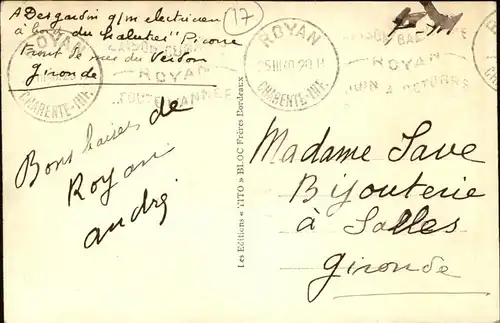 A Desgardin q/m electricien
à bord du chalutier "Picorre"
Front de mer du Verdon
Gironde
17
ROYAN
CHARENTE-INF.
ROYAN
TOUTE L'ANNÉE
ROYAN
25 III 40 20 H
CHARENTE-INF.
ROYAN
JUIN A OCTOBRE
Bons baisers de
Royan
andré
Les Editions « TITO » BLOC Frères Bordeaux
Madame Save
Bijouterie
à Salles
Gironde